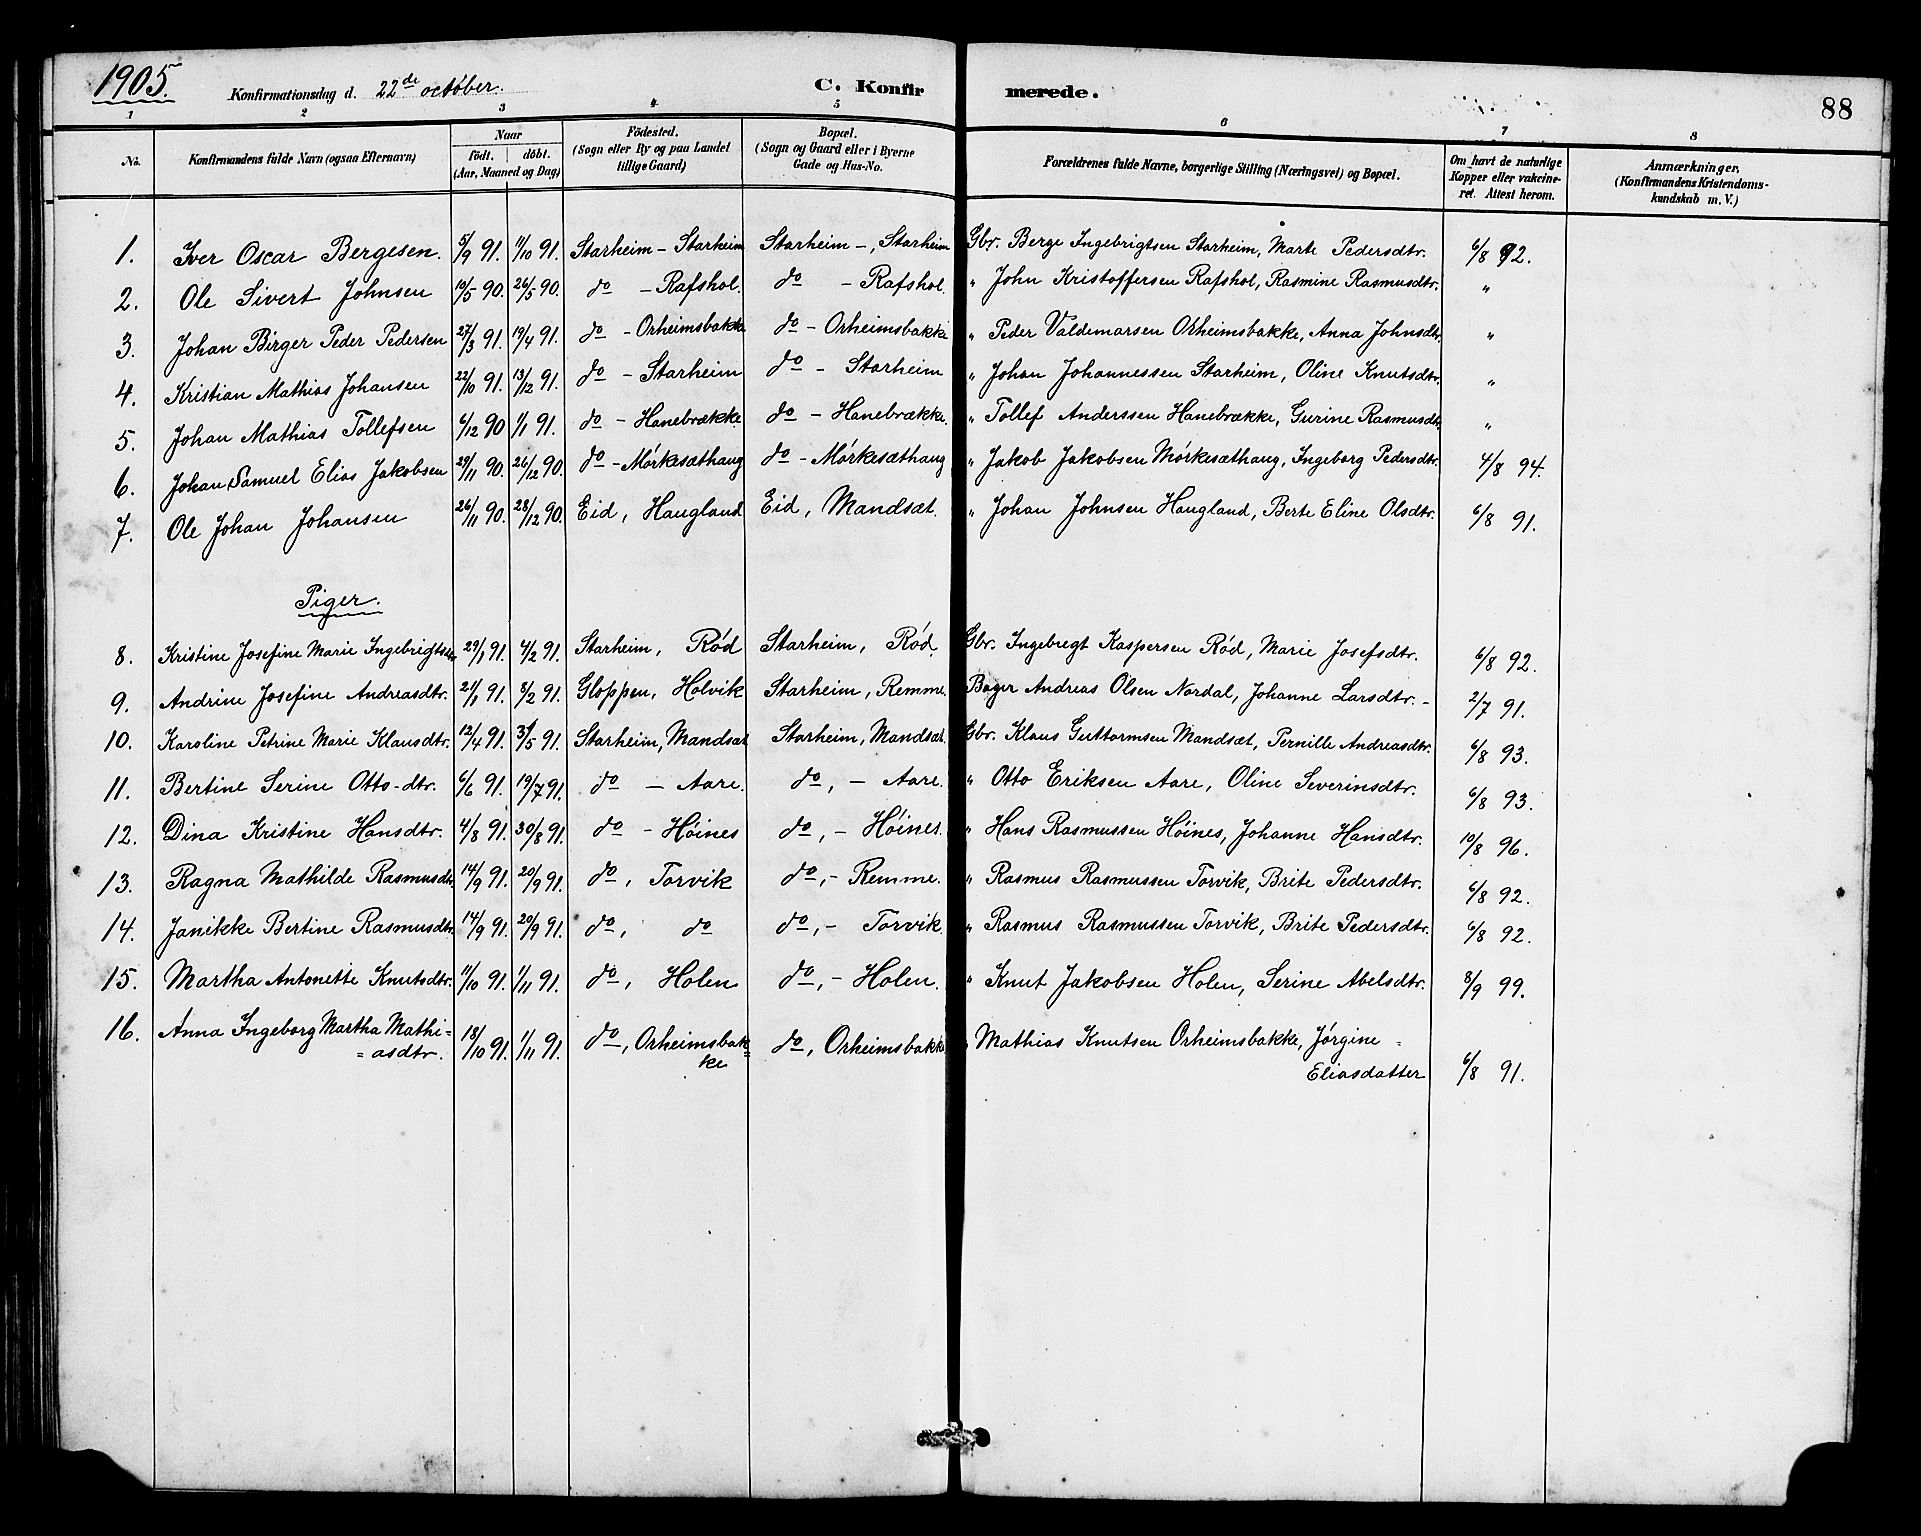 1905.
Konfirmationsdag d. 22de october.
C. Konfirmerede.
88
1 2 3 4 5 6 7 8
No. | Konfirmandens fulde Navn (ogsaa Efternavn) | Naar født. | døbt. (Aar, Maaned og Dag) | Fødested. (Sogn eller By og paa Landet tillige Gaard) | Bopæl. (Sogn og Gaard eller i Byerne Gade og Hus-No. | Forældrenes fulde Navne, borgerlige Stilling (Næringsvei) og Bopæl. | Om havt de naturlige Kopper eller vakcineret. Attest herom. | Anmærkninger. (Konfirmandens Kristendomskundskab m. V.)
1. Iver Oscar Bergesen. 5/9 91. 11/10 91. Starheim - Starheim Starheim -, Starheim Gbr. Berge Ingebrigtsen Starheim, Marte Pedersdtr. 6/8 92.
2. Ole Sivert Johnsen 10/5 90. 26/5 90. do - Rafshol. do - Rafshol. " John Kristoffersen Rafshol, Rasmine Rasmusdtr. "
3. Johan Birger Peder Pedersen 27/3 91. 19/4 91. do - Orheimsbakke do - Orheimsbakke " Peder Valdemarsen Orheimsbakke, Anna Johnsdtr. "
4. Kristian Mathias Johansen 22/10 91. 13/12 91. do - Starheim do - Starheim " Johan Johannessen Starheim, Oline Knutsdtr. "
5. Johan Mathias Tollefsen 6/12 90 1/1 91. do - Hanebrække do - Hanebrække. " Tollef Anderssen Hanebrække, Gurine Rasmusdtr "
6. Johan Samuel Elias Jakobsen 29/11 90. 26/12 90. do - Mørkesæthaug do - Mørkesæthaug " Jakob Jakobsen Mørkesæthaug, Ingeborg Pedersdtr. 4/8 94.
7. Ole Johan Johansen 26/11 90. 28/12 90. Eid, Haugland Eid, Mandsæt. " Johan Johnsen Haugland, Berte Eline Olsdtr. 6/8 91.
Piger.
8. Kristine Josefine Marie Ingebrigtsdtr 29/1 91. 4/2 91. Starheim, Rød Starheim, Rød. Gbr. Ingebregt Kaspersen Rød, Marie Josefsdtr. 6/8 92.
9. Andrine Josefine Andreasdtr. 21/1 91. 8/2 91. Gloppen, Holvik Starheim, Remme. Bager Andreas Olsen Nordal, Johanne Larsdtr. - 2/7 91.
10. Karoline Petrine Marie Klausdtr. 12/4 91. 31/5 91. Starheim, Mandsæt Starheim, Mandsæt. Gbr. Klaus Guttormsen Mandsæt, Pernille Andreasdtr. 6/8 93.
11. Bertine Serine Otto-dtr. 6/6 91. 19/7 91. do - Aare. do, - Aare. " Otto Eriksen Aare, Oline Severinsdtr. 6/8 93.
12. Dina Kristine Hansdtr. 4/8 91. 30/8 91. do - Høines do, - Høines. " Hans Rasmussen Høines, Johanne Hansdtr. 10/8 96.
13. Ragna Mathilde Rasmusdtr. 14/9 91. 20/9 91. do, Torvik do, - Remme. " Rasmus Rasmussen Torvik, Brite Pedersdtr. 6/8 92.
14. Janikke Bertine Rasmusdtr. 14/9 91. 20/9 91. do, do do, - Torvik. " Rasmus Rasmussen Torvik, Brite Pedersdtr. 6/8 92.
15. Martha Antonette Knutsdtr. 11/10 91. 1/11 91. do, Holen do, - Holen. " Knut Jakobsen Holen, Serine Abelsdtr. 8/9 99.
16. Anna Ingeborg Martha Mathi=
=asdtr. 18/10 91. 1/11 91. do, Orheimsbak=
ke do, Orheimsbakke " Mathias Knutsen Orheimsbakke, Jørgine =
Eliasdatter 6/8 91.